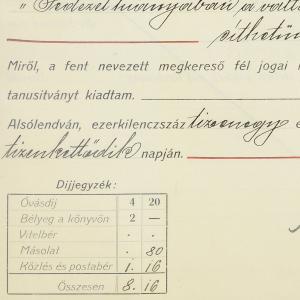 „Fedezet hiányában", a vált
síthetün
Miről, a fent nevezett megkereső fél jogai
tanusitványt kiadtam.
Alsólendván, ezerkilenczszáz tizenegy é
tizenkettődik napján.
Díjjegyzék:
Óvásdíj 4 20
Bélyeg a könyvön 2 —
Vitelbér . .
Másolat . 80
Közlés és postabér 1. 16
Összesen 8. 16